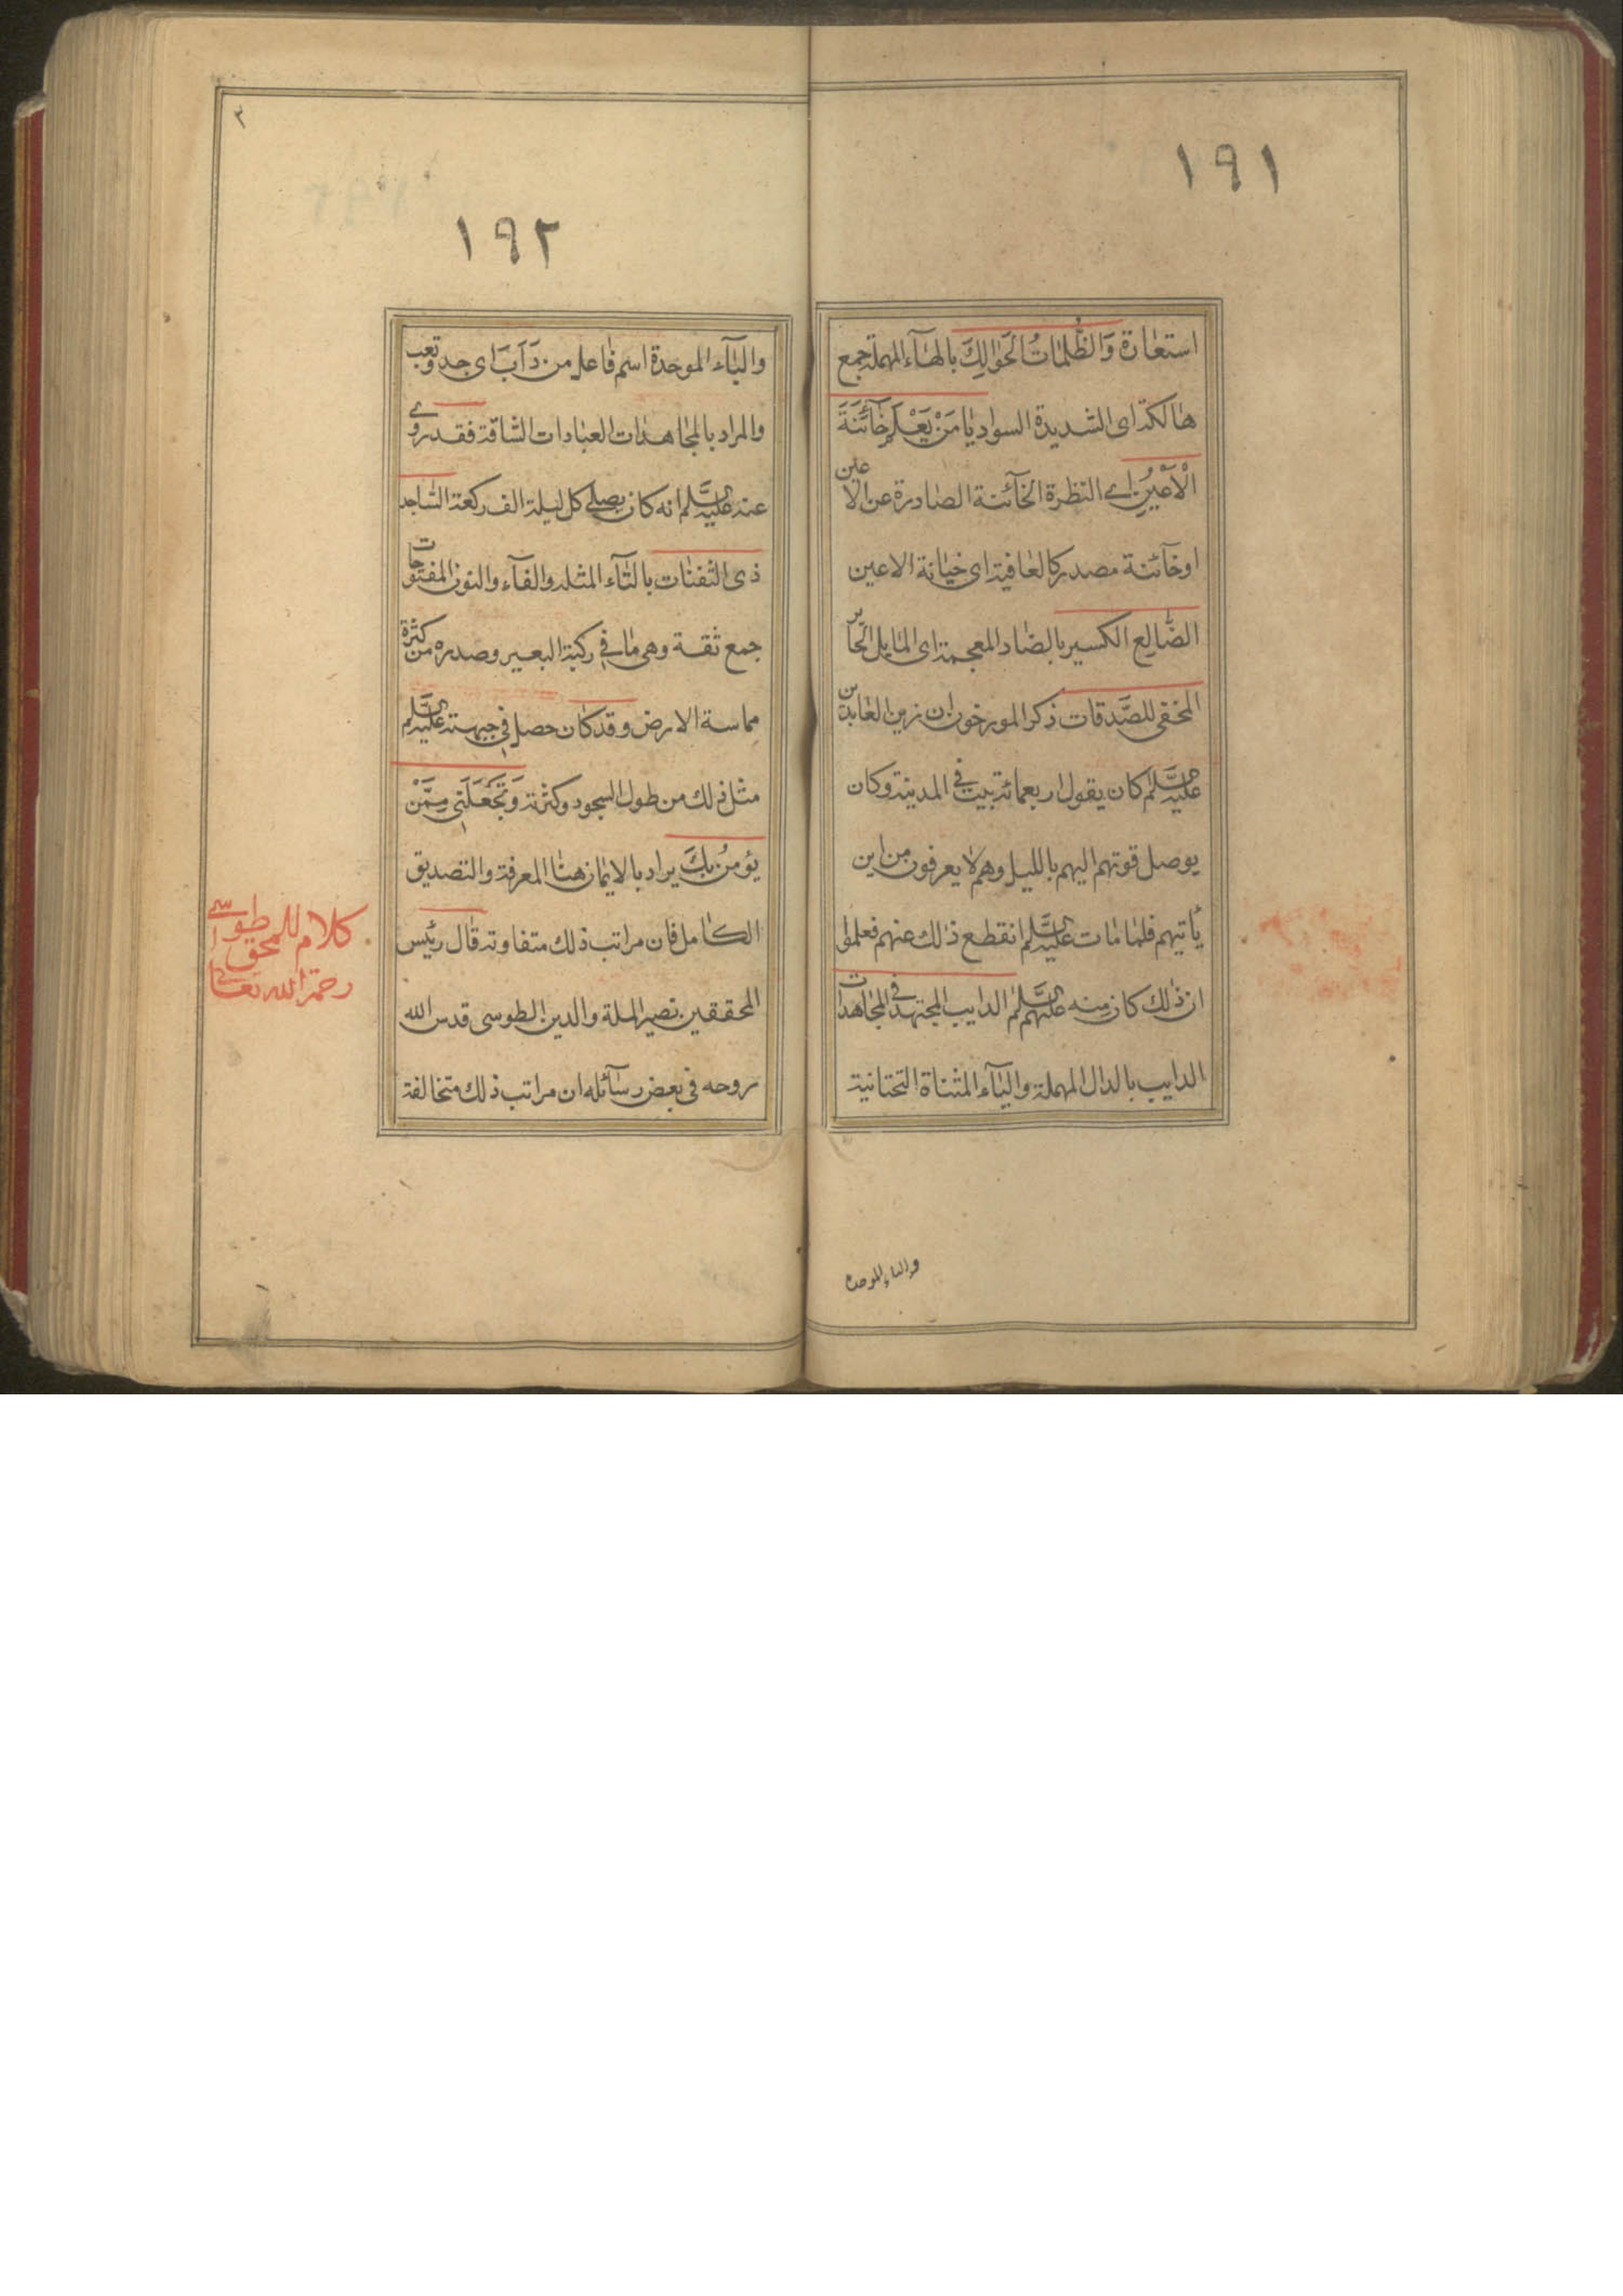 ١٩١
استعارة وَالظُّلمَاتُ الحَوَالِكَ بالهاء المهملة جمع
هالكة اى الشديدة السواد يا مَنْ يَعْلَم خَآئنَةَ
الْأَعْيُنِ اى النظرة الخآئنة الصادرة عن الاعين
او خآئنة مصدر كالعافية اى خيانة الاعين
الضَّالِع الكسير بالضاد المعجمة اى المايل الجاير
المخفى للصَّدقات ذكر المورخون ان زين العابدين
عليه السَّلم كان يقول اربعمائة بيت فى المدينة وكان
يوصل قوتهم اليهم بالليل وهم لا يعرفون من اين
يأتيهم فلما مات عليه السَّلم انقطع ذلك عنهم فعلموا
ان ذلك كان منه عليهم السَّلم الدايب المجتهد فى المجاهدات
الدايب بالدال المهملة والياء المثناة التحتانية
والباء الموحدة
٣
١٩٢
والبآء الموحدة اسم فاعل من دَآبَ اى جد وتعب
والمراد بالمجاهدات العبادات الشاقة فقد روى
عنه عليه السَّلم انه كان يصلى كل ليلة الف ركعة الساجد
ذى الثفنات بالثآء المثلثه والفآء والنون المفتوحات
جمع ثفنة وهى ما فى ركبة البعير وصدره من كثرة
مماسة الارض وقد كان حصل فى جبهته عليه السَّلم
مثل ذلك من طول السجود وكثرته وَتَجْعَلَنى مِمَّنْ
يؤمنُ بِكَ يراد بالايمان هنا المعرفة والتصديق
الكامل فان مراتب ذلك متفاوته قال رئيس
المحققين نصير الملة والدين الطوسى قدس الله
روحه فى بعض رسآئله ان مراتب ذلك متخالفة
كلام للمحقق
طوسى
رحمة الله تعالى